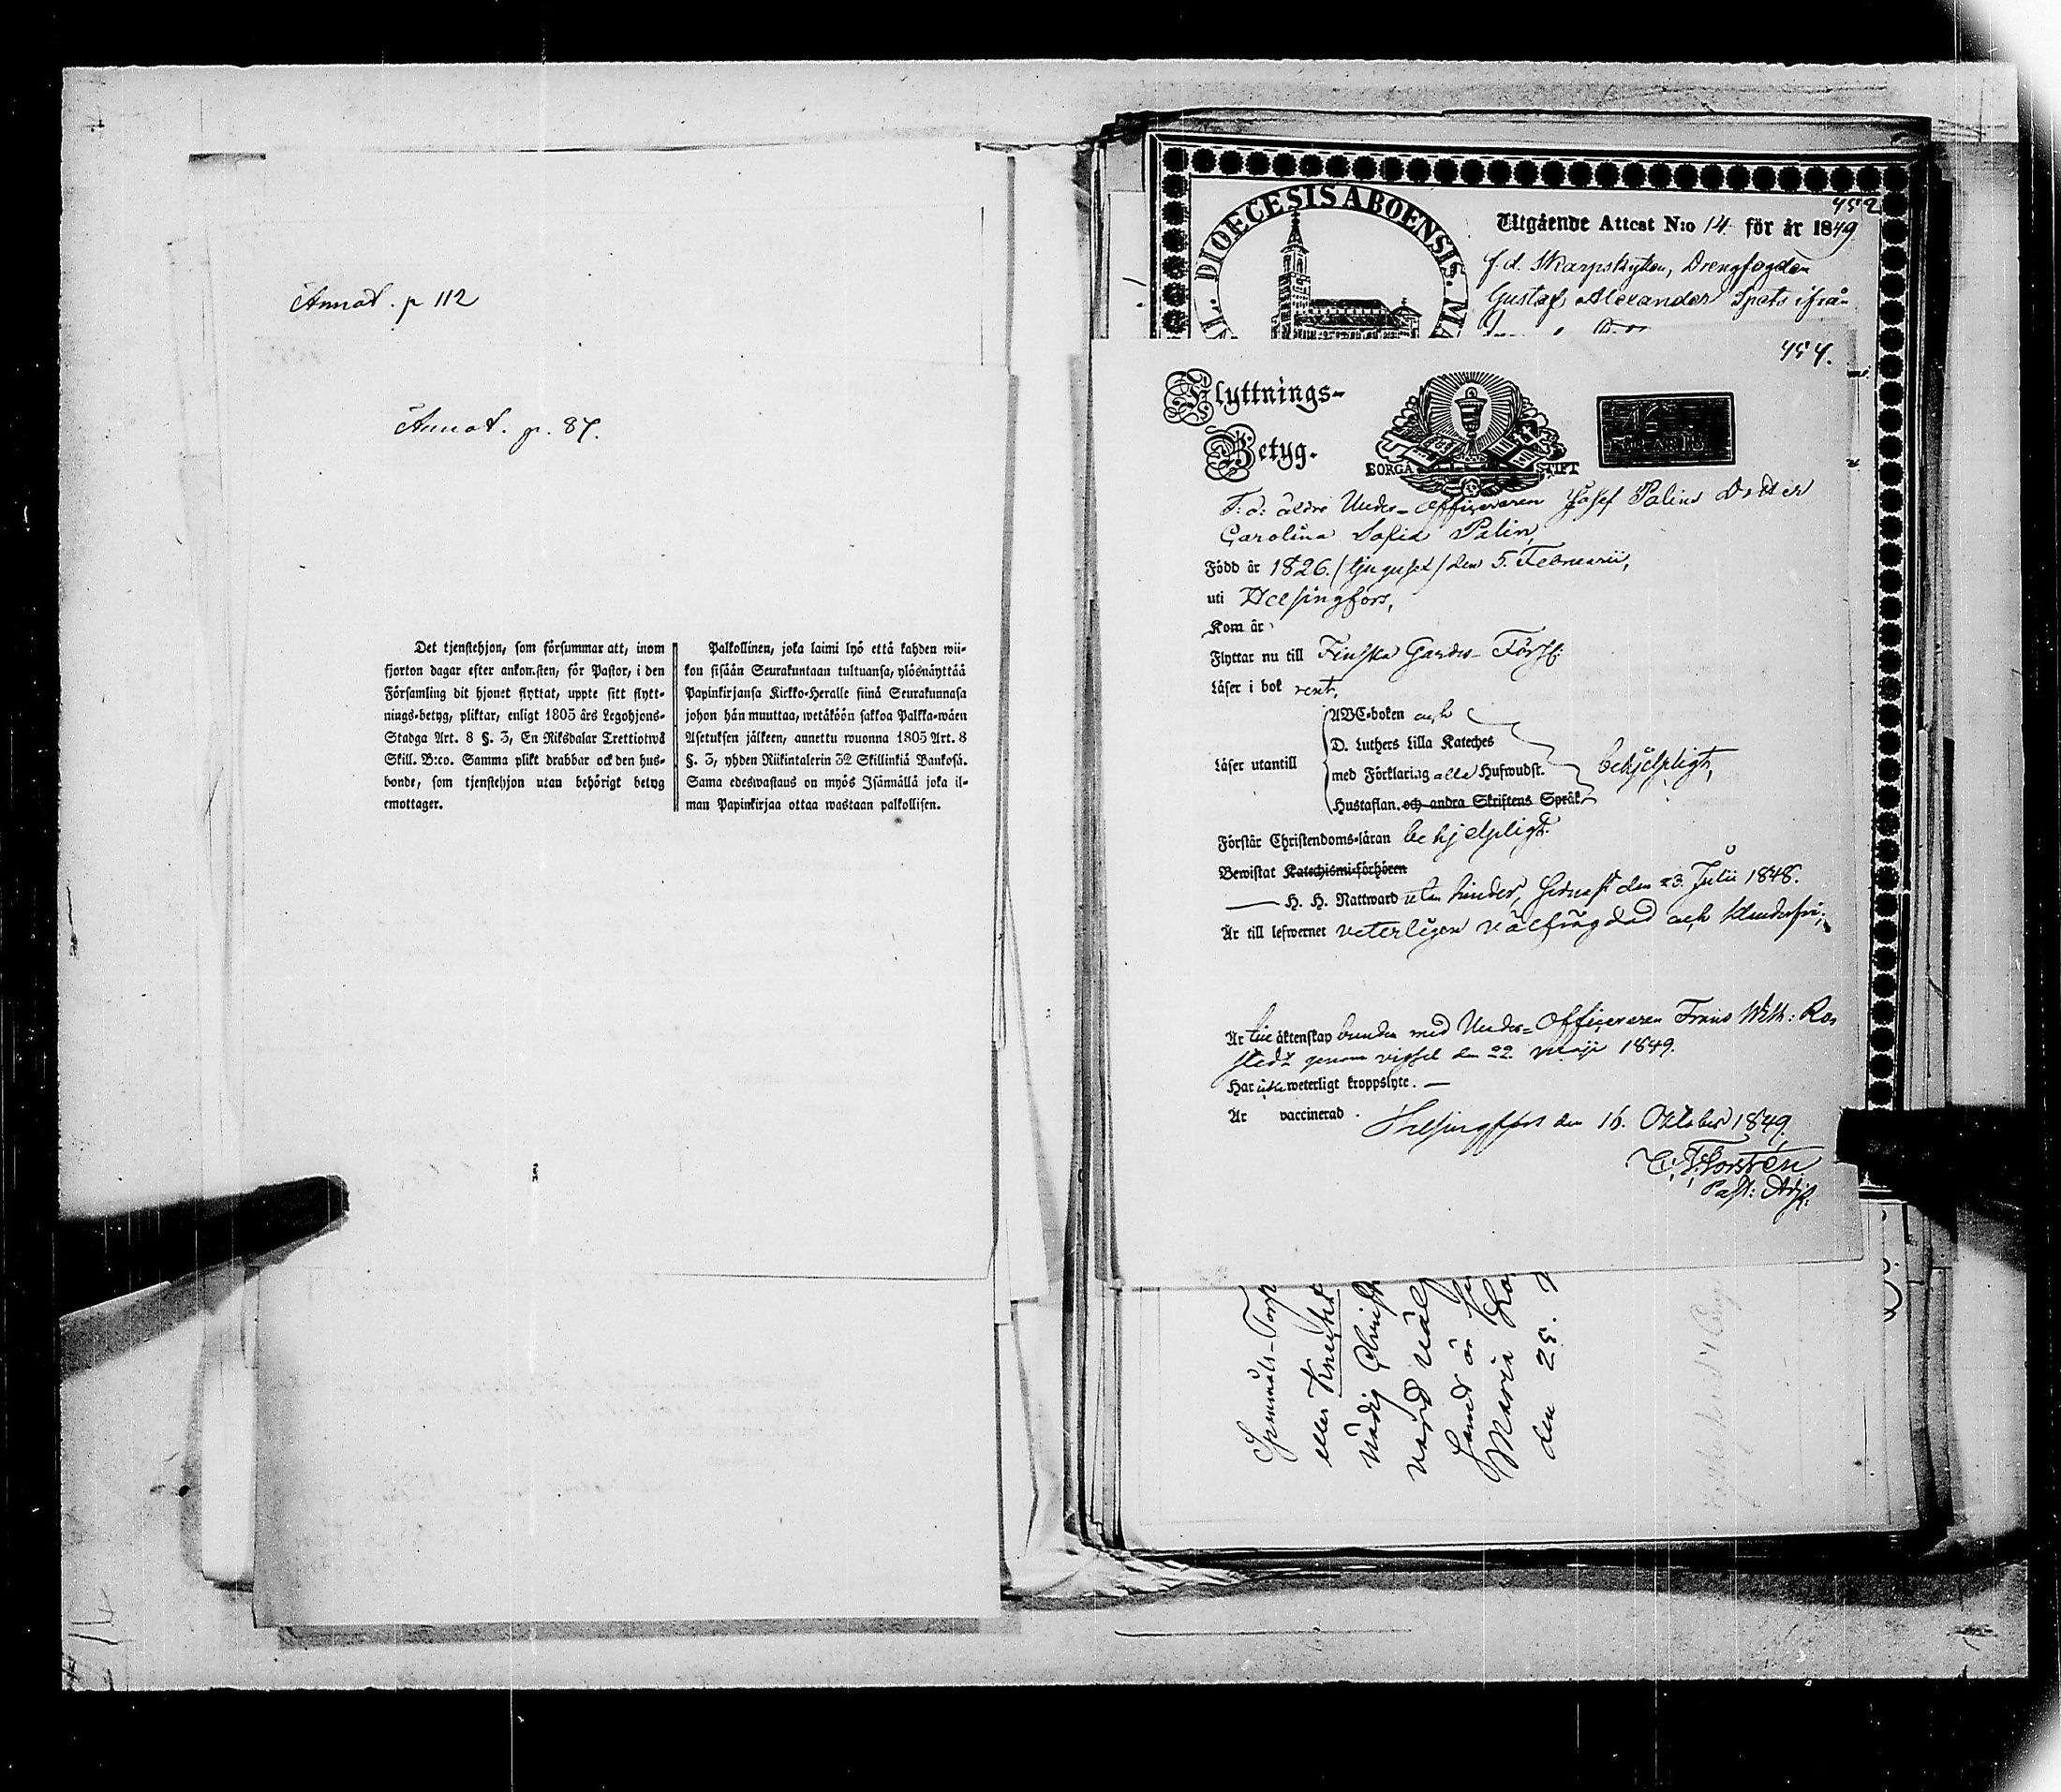 Annot. p 112
Annot. p. 87.
Det tjenstehjon, som försummar att, inom
fjorton dagar efter ankomsten, för Pastor, i den
Församling dit hjonet flyttat, uppte sitt flytt-
nings-betyg, pliktar, enligt 1805 års Legohjons-
Stadga Art. 8 §. 3, En Riksdalar Trettiotwå
Skill. B:co. Samma plikt drabbar ock den hus-
bonde, som tjenstehjon utan behörigt betyg
emottager.
Palkollinen, joka laimi lyö että kahden wii-
kon sisään Seurakuntaan tultuansa, ylösnäyttää
Papinkirjansa Kirkko-Heralle siinä Seurakunnasa
johon hän muuttaa, wetäköön sakkoa Palkka-wäen
Asetuksen jälkeen, annettu wuonna 1805 Art. 8
§. 3, yhden Riikintalerin 32 Skillinkiä Bankosa.
Sama edeswastaus on myös Isännällä joka il-
man Papinkirjaa ottaa wastaan palkollisen.
452
DIOECESIS ABOENSIS. MA
Utgående Attest N:o 14 för år 1849
f. d. Skarpskytten, Drengfogden
Gustaf Alexander Spets ifrån
454.
Flyttnings-
Betyg.
BORGÅ STIFT
F: d: äldre Under-officeraren Josef Palins Dotter
Carolina Sofia Palin,
Född år 1826. (tjugusex) den 5. Februarii,
uti Helsingfors,
Kom år
Flyttar nu till Finska Gardes-Förs:
Läser i bok rent,
Läser utantill
ABC-boken och
D. Luthers Lilla Kateches
med Förklaring alla Hufwudst.
Hustaflan. och andra Skriftens Språk
behjelpligt,
Förstår Christendoms-läran behjelpligt.
Bewistat Katechismi-förhören
H. H. Nattward utan hinder, senast den 23. Julii 1848.
Är till lefwernet veterligen välfrägdad och klanderfri;
Är till äktenskap bunden med Under-Officeraren Frans Wilh: Ro-
stedt genom vigsel den 22 Maji 1849.
Har icke weterligt kroppslyte. —
Är vaccinerad. Helsingfors den 16. Oktober 1849.
C. T. Forstén
Past: Adj:
Spinnäls-Torp
eller Knekt
nådig Christ
vard väl
Samt är
Maria Lo
den 25.